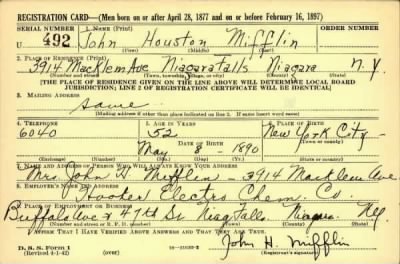 REGISTRATION CARD—(Men born on or after April 28, 1877 and on or before February 16, 1897)
SERIAL NUMBER 1. NAME (Print) ORDER NUMBER
U 492 John Houston Mifflin
(First) (Middle) (Last)
2. PLACE OF RESIDENCE (Print)
3914 Macklem Ave Niagara Falls Niagara N.Y.
(Number and street) (Town, township, village, or city) (County) (State)
[THE PLACE OF RESIDENCE GIVEN ON THE LINE ABOVE WILL DETERMINE LOCAL BOARD
JURISDICTION; LINE 2 OF REGISTRATION CERTIFICATE WILL BE IDENTICAL]
3. MAILING ADDRESS
Same
[Mailing address if other than place indicated on line 2. If same insert word same]
4. TELEPHONE 5. AGE IN YEARS 6. PLACE OF BIRTH
6040 52 New York City
DATE OF BIRTH (Town or county)
May 8 1890
(Exchange) (Number) (Mo.) (Day) (Yr.) (State or country)
7. NAME AND ADDRESS OF PERSON WHO WILL ALWAYS KNOW YOUR ADDRESS
Mrs John H. Mifflin - 3914 Macklem Ave
8. EMPLOYER'S NAME AND ADDRESS
Hooker Electro Chem. Co.
9. PLACE OF EMPLOYMENT OR BUSINESS
Buffalo Ave & 47th St Niag Falls. Niagara N.Y.
(Number and street or R. F. D. number) (Town) (County) (State)
I AFFIRM THAT I HAVE VERIFIED ABOVE ANSWERS AND THAT THEY ARE TRUE.
D. S. S. Form 1
(Revised 4-1-42) (over)
John H. Mifflin